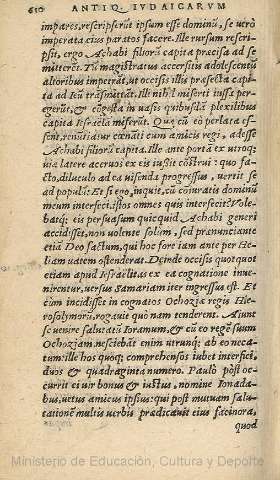 610 ANTIQ. IVDAICARVM
impares, rescripserūt ipsum esse dominū, se verò
imperata eius paratos facere. Ille rursum rescri-
psit, ergo Achabi filiorū capita præcisa ad se
mitterēt. Tū magistratus accersitis adolescentū
altoribus imperāt, ut occisis illis præsecta capi-
ta ad Ieu trāsmittāt. Ille nihil cunctati iussa per-
egerūt, & cōgesta in uasis quibusdā plexilibus
capita Iesraëla miserūt. Quæ cū eò perlata es-
sent, renūtiatur cœnāti cum amicis regi, adesse
Achabi filiorū capita. Ille ante portā ex utroq;
via latere aceruos ex eis iussit cōstrui: quo fa-
cto, diluculo ad ea uisenda progressus, uertit se
ad populū: Et si ego, inquit, cū cōiuratis dominū
meum interfeci, istos omnes quis interfecit? Vole-
batq; eis persuasum quicquid Achabi generi
accidisset, non uolente solùm, sed prænunciante
etiā Deo factum, qui hoc fore iam ante per He-
liam uatem ostenderat. Deinde occisis quotquot
etiam apud Israëlitas ex ea cognatione inue-
nirentur, versus Samariam iter ingressus est. Et
cùm incidisset in cognatos Ochoziæ regis Hie-
rosolymorū, rogauit quò nam tenderent. Aiunt
se venire salutatū Ioramum, & cū eo regē suum
Ochoziā, nesciebāt enim utrunq; ab eo neca-
tum: ille hos quoq; comprehensos iubet interfici,
duos & quadraginta numero. Paulò pòst oc-
currit ei uir bonus & iustus, nomine Ionada-
bus, uetus amicus ipsius: qui post mutuam salu-
tationē multis uerbis prædicauit eius facinora,
quod
Ministerio de Educación, Cultura y Deporte